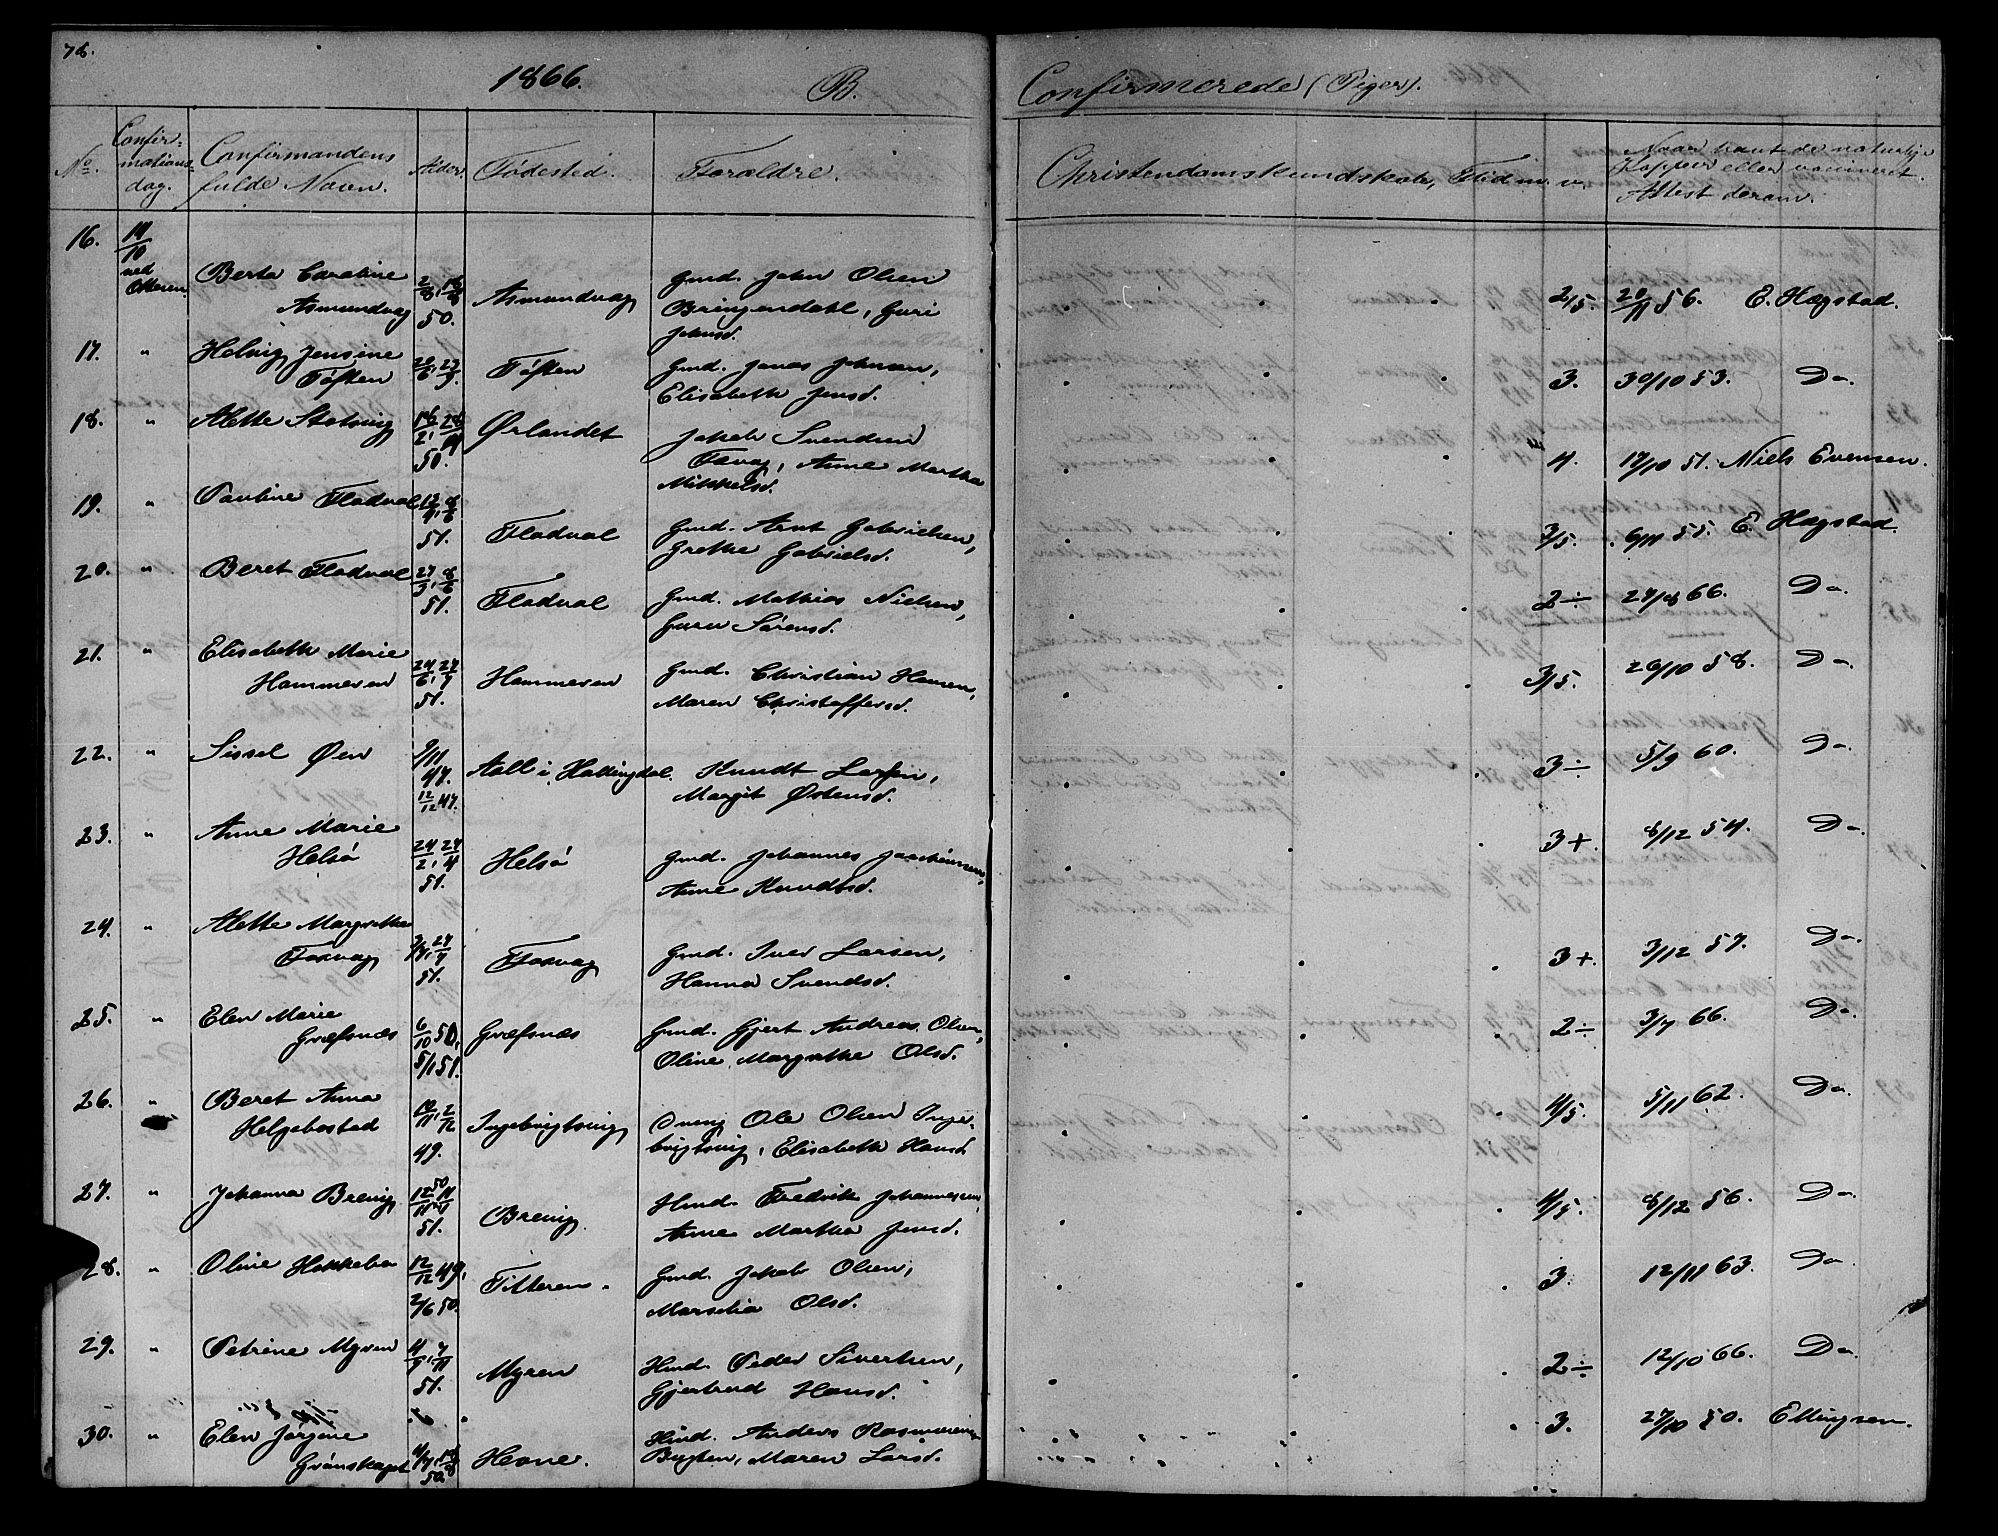 78.
1866. B. Confirmerede (Piger).
No. Confirmationsdag. Confirmandens fulde Navn. Alder. Fødested. Forældre. Christendomskundskab, Flid m. v. Naar havt de naturlige Kopper eller vaccineret. Attest derom.
16. 14/10 ved Otteren. Berta Caroline Asmundvag 2/8, 18/8 50. Asmundvag Gmd. John Olsen Bringendahl, Guri Johnsd. 2/5. 20/11 56. E. Hægstad.
17. " Helvig Jensine Toften 20/6, 23/9. Toften Gmd. Jonas Johnsen, Elisabeth Jensd. 3. 30/10 53. Do.
18. " Alette Stolsvig 18/2, 28/4 50. Ørlandet Jakob Svendsen Taxvag, Anne Martha Mikkelsd. 4. 17/10 51. Niels Evensen.
19. " Pauline Fladval 13/4, 8/6 51. Fladval Gmd. Arnt Gabrielsen, Grethe Gabrielsd. 3/5. 6/11 55. E. Hægstad
20. " Beret Fladval 27/3, 8/6 51. Fladval Gmd. Mathias Nielsen, Guru Sørensd. 2÷ 27/8 66. Do.
21. " Elisabeth Marie Hammeren 24/6, 27/7 51. Hammeren Gmd. Christian Hansen, Maren Christoffersd. 3/5. 26/10 58. Do.
22. " Sissel Øen 9/11 47. 12/12 47. Aall i Hallingdal. Knudt Larsen, Margit Østensd. 3÷ 5/9 60. Do.
23. " Anne Marie Helsø 24/2, 27/4 51. Helsø Gmd. Johannes Joachimsen, Anne Knudtsd. 3+ 8/12 54. Do.
24. " Alette Margrethe Taxvag 3/7, 27/7 51. Taxvag Gmd. Iver Larsen, Hanna Svendsd. 3+. 3/12 57. Do.
25. " Elen Marie Græfsnæs 6/10 50, 5/1 51. Græfsnæs Gmd. Gjert Andreas Olsen, Oline Margrethe Olsd. 2÷ 3/7 66. Do.
26. " Beret Anna Helgebostad 10/11, 2/12 49. Ingebrigtsvig Dreng Ole Olsen Ingebrigtsvig, Elisabeth Hansd. 4/5. 5/11 62. Do.
27. " Johanna Breivig 12/11 50, 11/4 51. Breivig. Hmd. Fredrik Johannessen, Anne Martha Jensd. 4/5. 8/12 56. Do.
28. " Oline Hokkelva 12/12 49, 2/6 50. Titteren. Gmd. Jakob Olsen, Marselia Olsd. 3. 12/11 63. Do.
29. " Petrine Myren 4/9, 7/11 51. Myren Hmd. Peder Sivertsen, Gjertrud Hansd. 2÷ 12/10 66. Do.
30. " Elen Jørgine Grønskaget 4/7, 18/8 50. Hevne. Hmd. Anders Rasmussen Bugten, Maren Larsd. 3. 27/10 50. Ellingsen.